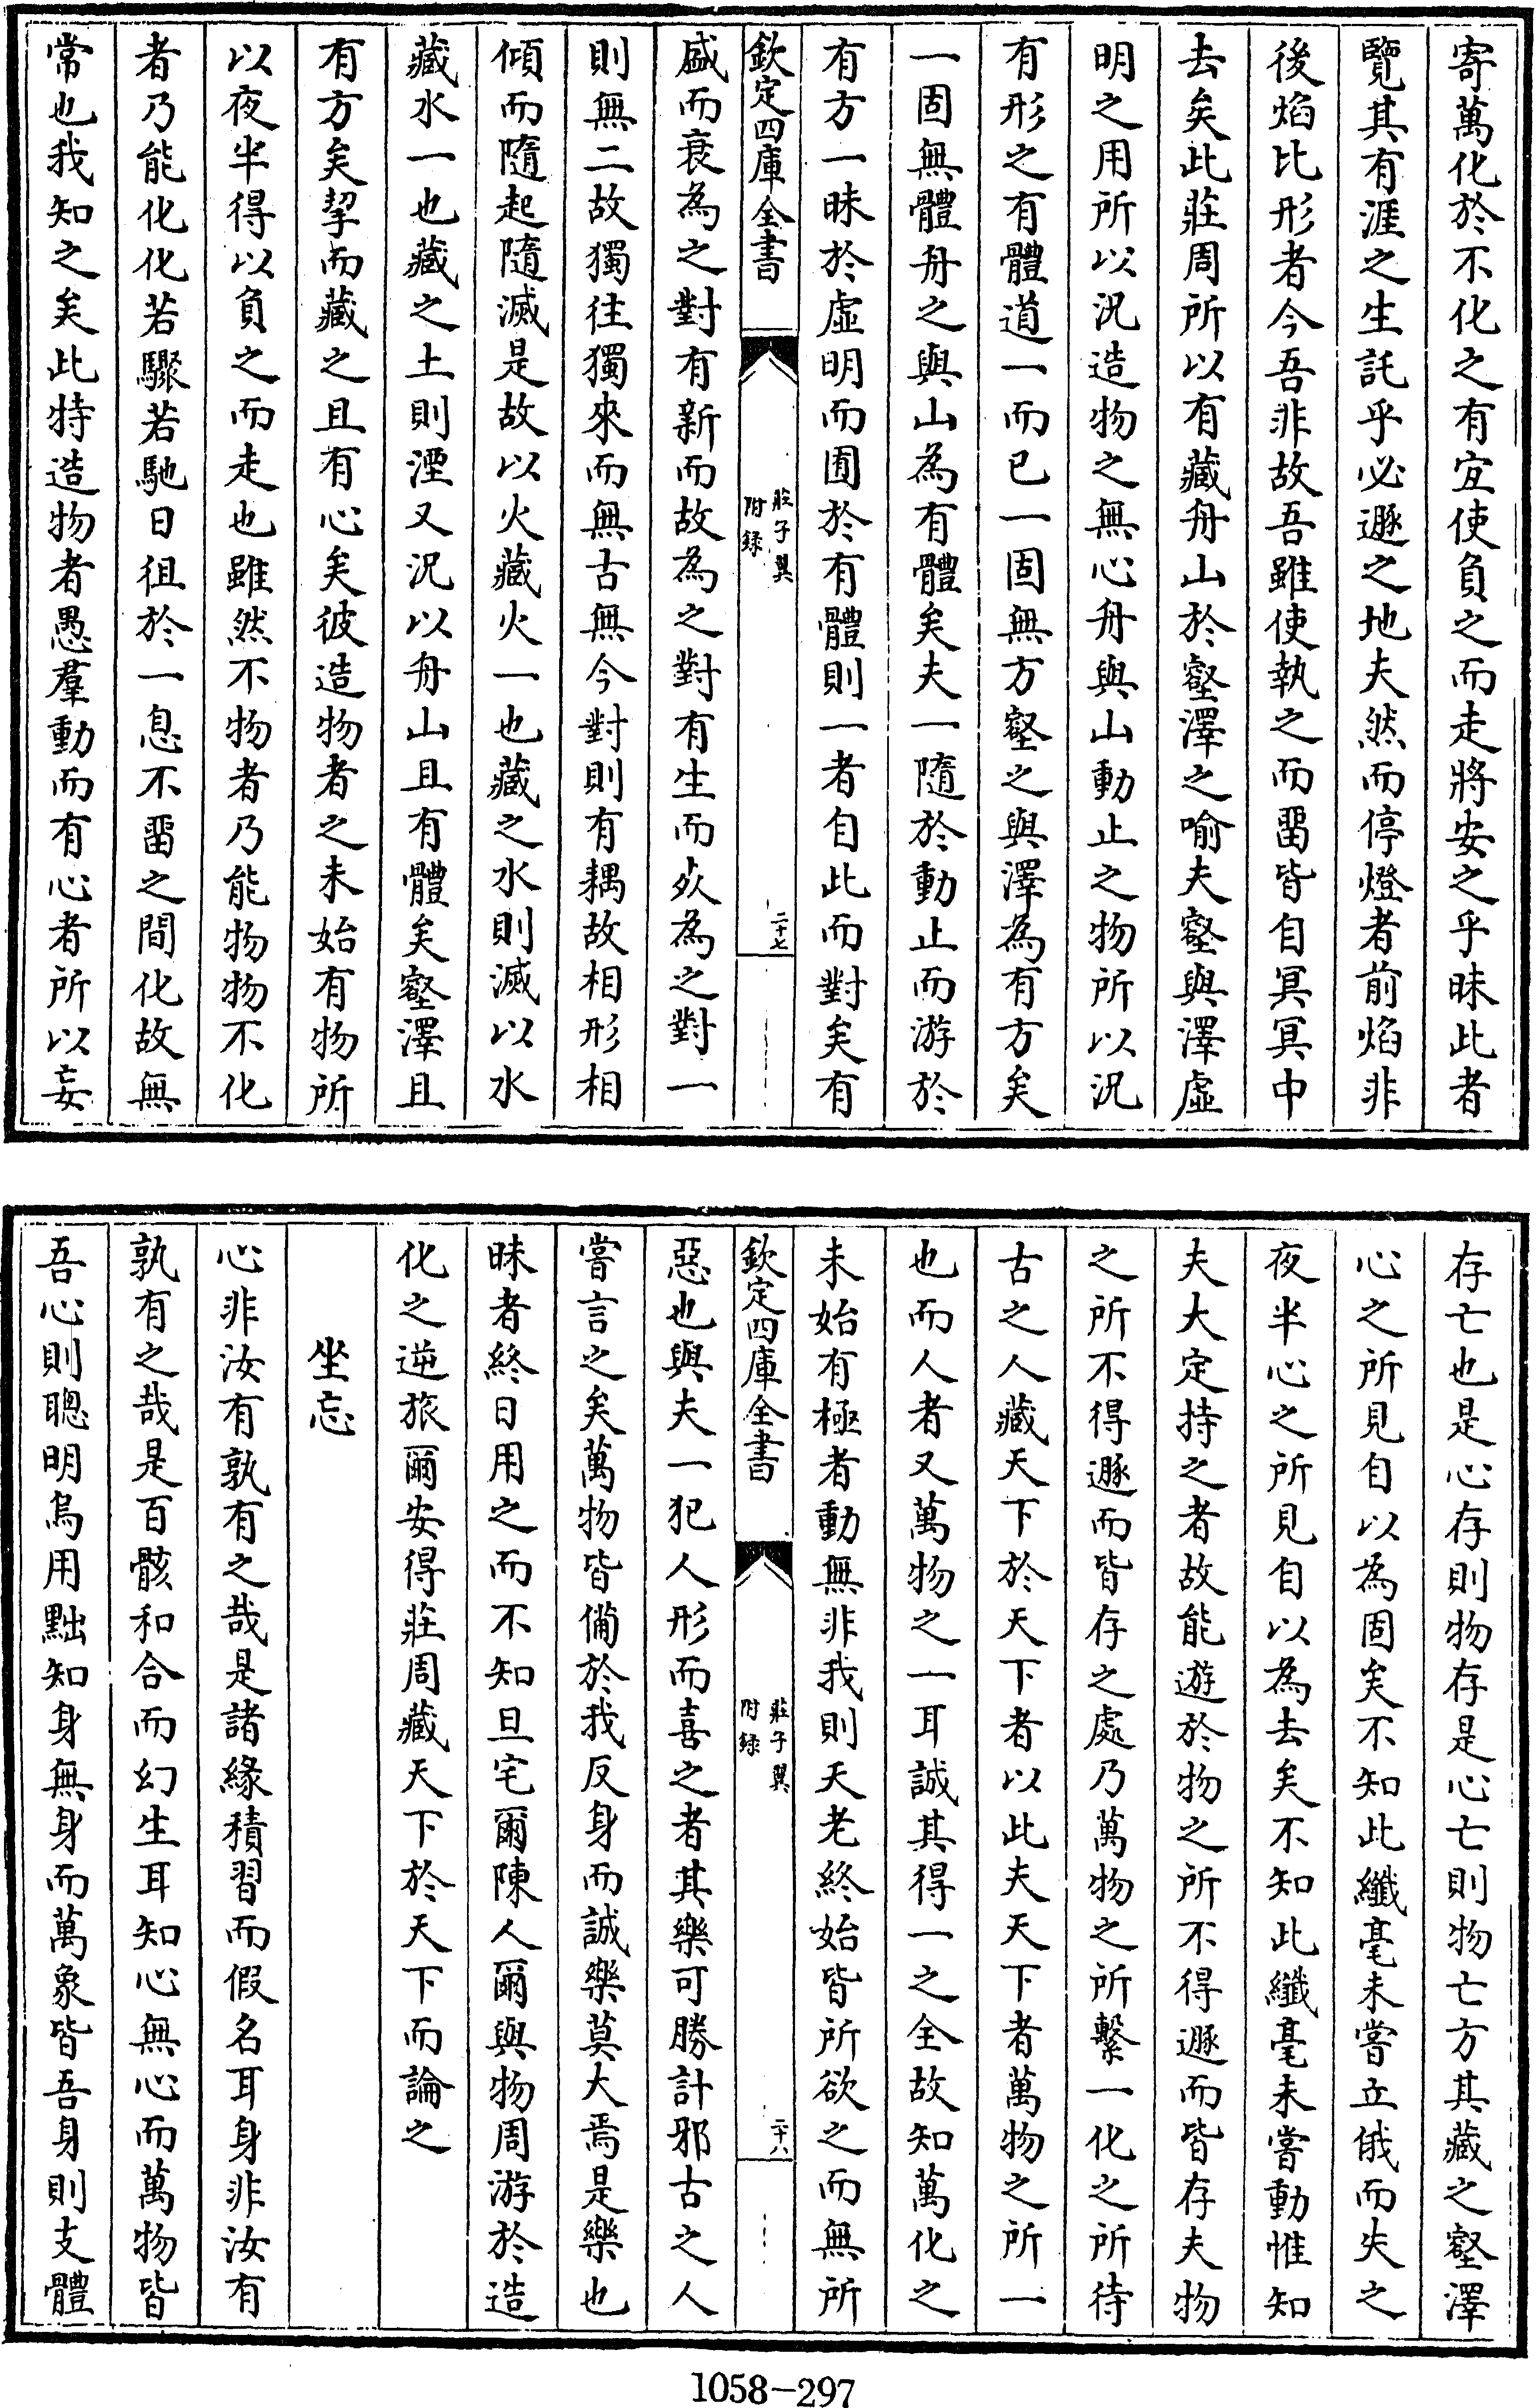 寄萬化於不化之有宜使負之而走將安之乎昧此者
覽其有涯之生託乎必遯之地夫然而停燈者前焰非
後焰比形者今吾非故吾雖使執之而畱皆自冥冥中
去矣此莊周所以有藏舟山於壑澤之喻夫壑與澤虛
明之用所以況造物之無心舟與山動止之物所以況
有形之有體道一而已一固無方壑之與澤為有方矣
一固無體舟之與山為有體矣夫一隨於動止而游於
有方一昧於虛明而囿於有體則一者自此而對矣有
欽定四庫全書
莊子翼
附錄
二十七
盛而衰為之對有新而故為之對有生而死為之對一
則無二故獨往獨來而無古無今對則有耦故相形相
傾而隨起隨滅是故以火藏火一也藏之水則滅以水
藏水一也藏之土則湮又況以舟山且有體矣壑澤且
有方矣挈而藏之且有心矣彼造物者之未始有物所
以夜半得以負之而走也雖然不物者乃能物物不化
者乃能化化若驟若馳日徂於一息不畱之間化故無
常也我知之矣此特造物者愚羣動而有心者所以妄
存亡也是心存則物存是心亡則物亡方其藏之壑澤
心之所見自以為固矣不知此纖毫未嘗立俄而失之
夜半心之所見自以為去矣不知此纖毫未嘗動惟知
夫大定持之者故能遊於物之所不得遯而皆存夫物
之所不得遯而皆存之處乃萬物之所繫一化之所待
古之人藏天下於天下者以此夫天下者萬物之所一
也而人者又萬物之一耳誠其得一之全故知萬化之
未始有極者動無非我則天老終始皆所欲之而無所
欽定四庫全書
莊子翼
附錄
二十八
惡也與夫一犯人形而喜之者其樂可勝計邪古之人
嘗言之矣萬物皆備於我反身而誠樂莫大焉是樂也
昧者終日用之而不知旦宅爾陳人爾與物周游於造
化之逆旅爾安得莊周藏天下於天下而論之
坐忘
心非汝有孰有之哉是諸緣積習而假名耳身非汝有
孰有之哉是百骸和合而幻生耳知心無心而萬物皆
吾心則聰明烏用黜知身無身而萬象皆吾身則支體
1058-297